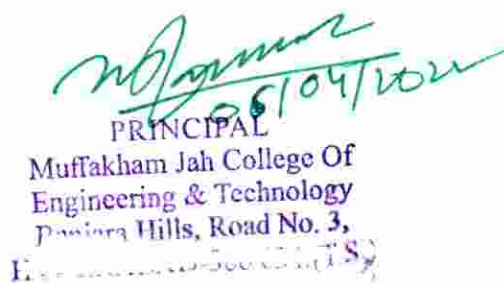 06/04/2022
PRINCIPAL
Muffakham Jah College Of
Engineering & Technology
Hills, Road No. 3,
(T.S)